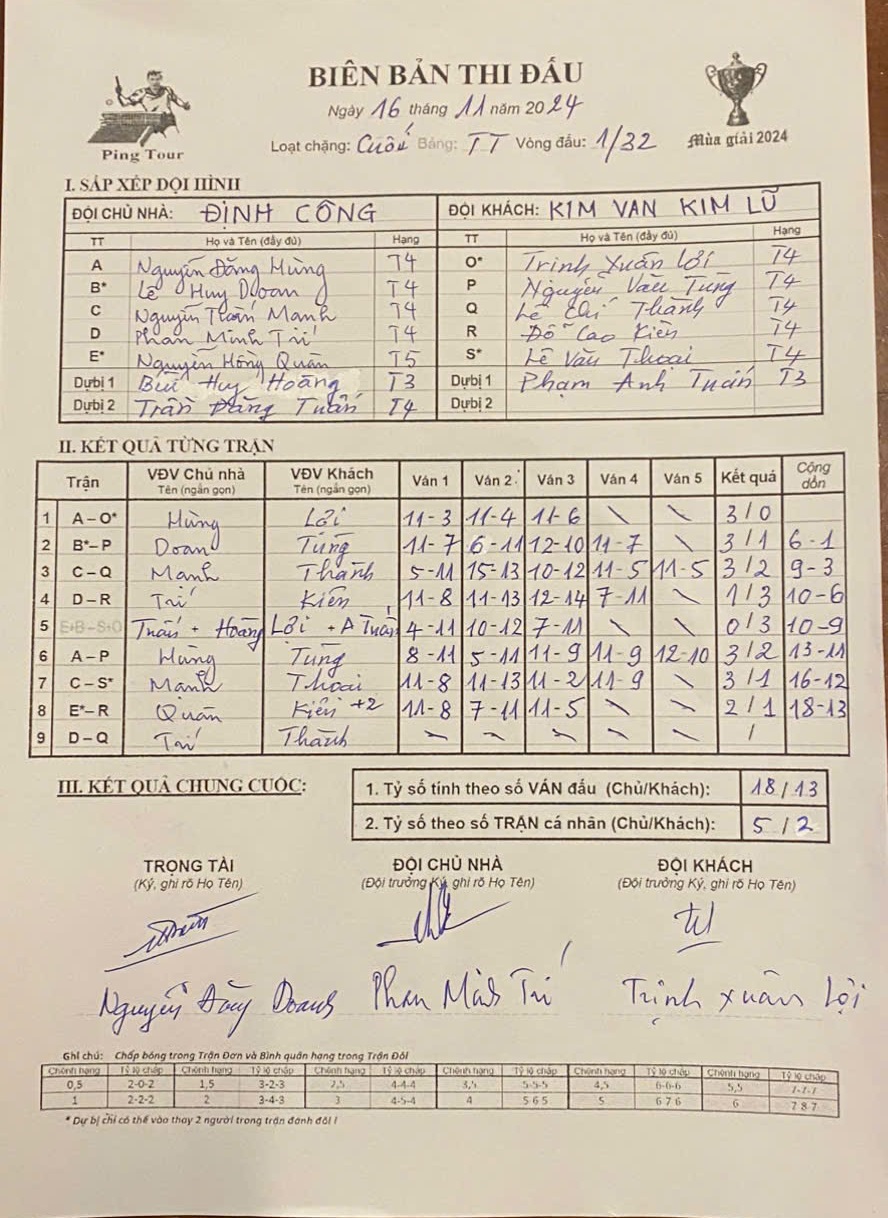 BIÊN BẢN THI ĐẤU
Ngày 16 tháng 11 năm 2024
Loạt chặng: Cuối Bảng: TT Vòng đấu: 1/32
Ping Tour
Mùa giải 2024
I. SẮP XẾP ĐỘI HÌNH
ĐỘI CHỦ NHÀ: ĐỊNH CÔNG ĐỘI KHÁCH: KIM VAN KIM LŨ
TT Họ và Tên (đầy đủ) Hạng TT Họ và Tên (đầy đủ) Hạng
A Nguyễn Đăng Hùng T4 O* Trịnh Xuân Lợi T4
B* Lê Huy Doan T4 P Nguyễn Văn Tùng T4
C Nguyễn Mạnh T4 Q Lê Chí Thành T4
D Phan Minh Trí T4 R Đỗ Cao Kiên T4
E* Nguyễn Hồng Quân T5 S* Lê Văn Thoai T4
Dự bị 1 Bùi Huy Hoàng T3 Dự bị 1 Phạm Anh Tuấn T3
Dự bị 2 Trần Đăng Tuấn T4 Dự bị 2
II. KẾT QUẢ TỪNG TRẬN
Trận VĐV Chủ nhà VĐV Khách Ván 1 Ván 2 Ván 3 Ván 4 Ván 5 Kết quả Cộng dồn
Tên (ngắn gọn) Tên (ngắn gọn)
1 A – O* Hùng Lợi 11-3 11-4 11-6 \ \ 3/0
2 B* – P Doan Tùng 11-7 6-11 12-10 11-7 \ 3/1 6-1
3 C – Q Mạnh Thành 5-11 15-13 10-12 11-5 11-5 3/2 9-3
4 D – R Trí Kiên 11-8 11-13 12-14 7-11 \ 1/3 10-6
5 E+B – S+O Tuấn + Hoàng Lợi + A Tuấn 4-11 10-12 7-11 \ \ 0/3 10-9
6 A – P Hùng Tùng 8-11 5-11 11-9 11-9 12-10 3/2 13-11
7 C – S* Mạnh Thoai 11-8 11-13 11-2 11-9 \ 3/1 16-12
8 E* – R Quân Kiên +2 11-8 7-11 11-5 \ \ 2/1 18-13
9 D – Q Trí Thành - - - \ \ /
III. KẾT QUẢ CHUNG CUỘC:
1. Tỷ số tính theo số VÁN đấu (Chủ/Khách): 18/13
2. Tỷ số theo số TRẬN cá nhân (Chủ/Khách): 5/2
TRỌNG TÀI ĐỘI CHỦ NHÀ ĐỘI KHÁCH
(Ký, ghi rõ Họ Tên) (Đội trưởng Ký, ghi rõ Họ Tên) (Đội trưởng Ký, ghi rõ Họ Tên)
Nguyễn Doanh Phan Minh Trí Trịnh Xuân Lợi
Ghi chú: Chấp bóng trong Trận Đơn và Bình quân hạng trong Trận Đôi
Chênh hạng Tỷ lệ chấp Chênh hạng Tỷ lệ chấp Chênh hạng Tỷ lệ chấp Chênh hạng Tỷ lệ chấp Chênh hạng Tỷ lệ chấp Chênh hạng Tỷ lệ chấp
0,5 2-0-2 1,5 3-2-3 2,5 4-4-4 3,5 5-5-5 4,5 6-6-6 5,5 7-7-7
1 2-2-2 2 3-4-3 3 4-5-4 4 5 6 5 5 6 7 6 6 7 8 7
* Dự bị chỉ có thể vào thay 2 người trong trận đánh đôi !